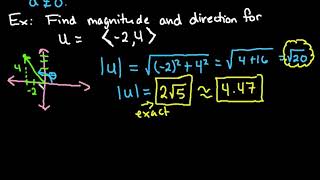 u ≠ 0.
Ex: Find magnitude and direction for
u = ⟨-2,4⟩
|u| = √((-2)²+4²) = √(4+16) = √20
|u| = 2√5 ≈ 4.47
exact
4
-2